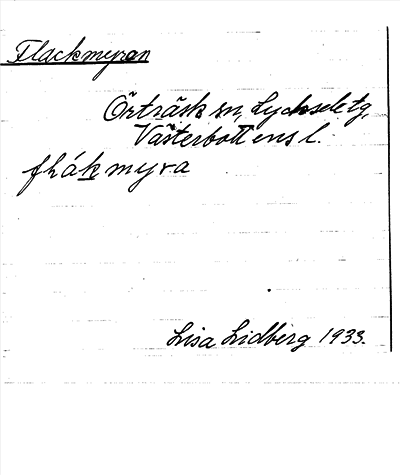 Flackmyran
Örträsk sn, Lycksele tg,
Västerbottens l.
flákmyra
Lisa Lidberg 1933.